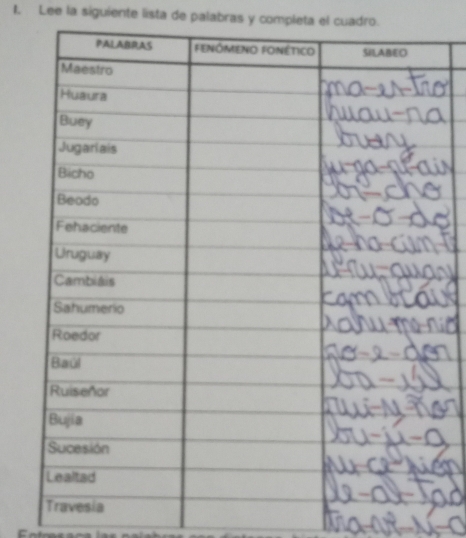 I. Lee la siguiente lista de palabras y completa el cuadro.
PALABRAS FENÓMENO FONÉTICO SILABEO
Maestro ma-es-tro
Huaura huau-ra
Buey buey
Jugaríais
Bicho bi-cho
Beodo be-o-do
Fehaciente
Uruguay U-ru-guay
Cambiáis cam biáis
Sahumerio sahu-me-rio
Roedor ro-e-dor
Baúl ba-úl
Ruiseñor rui-se-ñor
Bujía bu-jí-a
Sucesión su-ce-sión
Lealtad le-al-tad
Travesía tra-ve-sí-a